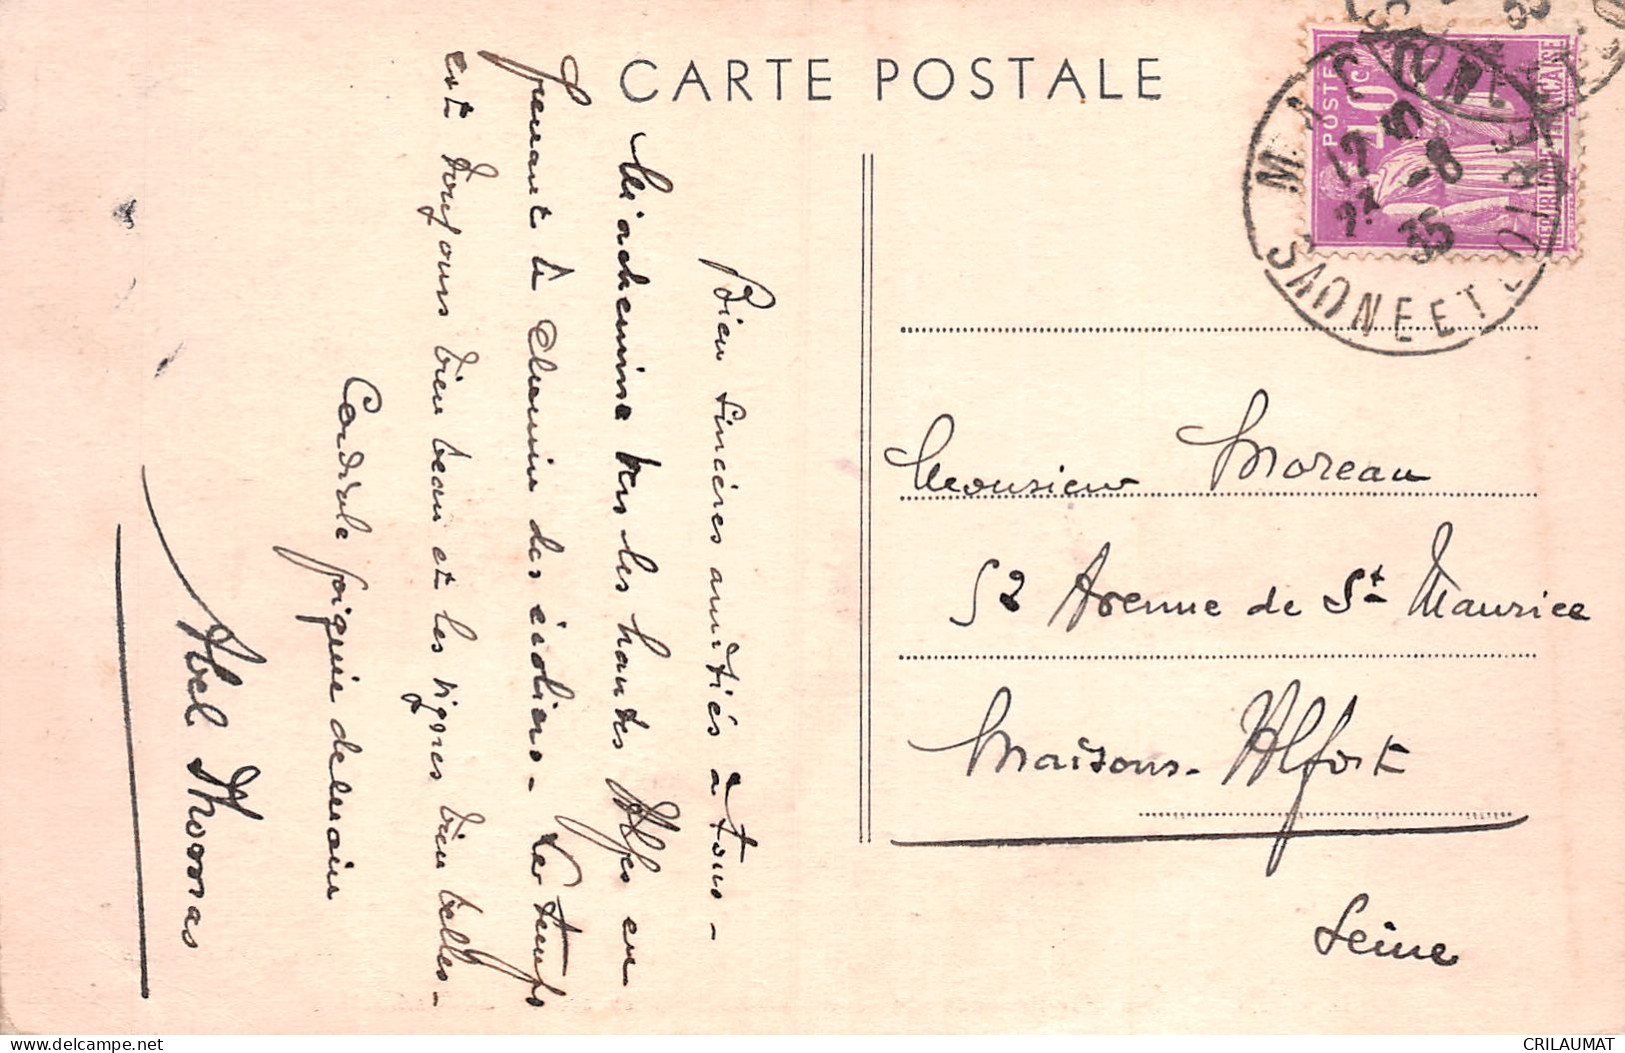 CARTE POSTALE
Bien sincères amitiés à tous -
M'achemine vers les hautes Alpes en
prenant le chemin des écoliers - Le temps
est toujours bien beau et les vignes bien belles -
Cordiale poignée de main
Abel Thomas
POSTES
40c
REPUBLIQUE FRANÇAISE
MACON
12
23 -8
35
SAONE ET LOIRE
Monsieur Moreau
52 Avenue de St Maurice
Maisons-Alfort
Seine
CRILAUMAT